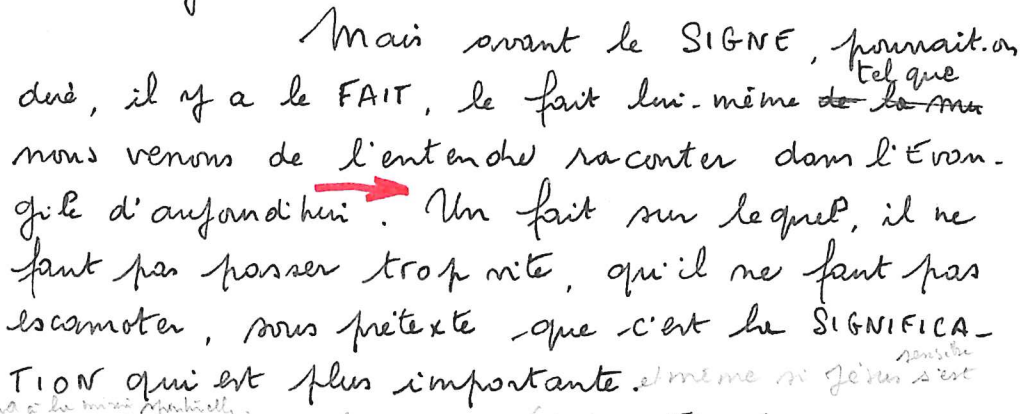 Mais avant le SIGNE, pourrait-on
dire, il y a le FAIT, le fait lui-même de la mu tel que
nous venons de l'entendre raconter dans l'Evan-
gile d'aujourd'hui. Un fait sur lequel, il ne
faut pas passer trop vite, qu'il ne faut pas
escamoter, sous prétexte que c'est la SIGNIFICA-
TION qui est plus importante. et même si Jésus s'est sensible
à la misère spirituelle.